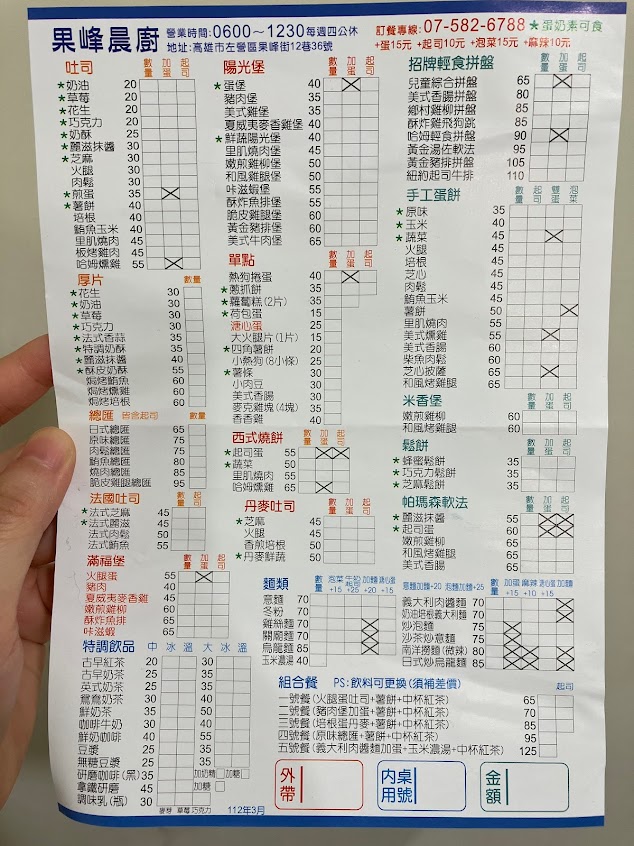 果峰晨廚
營業時間:0600～1230每週四公休
地址:高雄市左營區果峰街12巷36號
訂餐專線:07-582-6788 *蛋奶素可食
+蛋15元 +起司10元 +泡菜15元 +麻辣10元
吐司 數量 加蛋 起司
*奶油 20
*草莓 20
*花生 20
*巧克力 20
*奶酥 25
*麗滋抹醬 30
*芝麻 30
火腿 30
肉鬆 30
*煎蛋 35
*薯餅 40
培根 40
鮪魚玉米 40
里肌燒肉 45
板烤雞肉 45
哈姆燻雞 55
厚片 數量
*花生 30
*奶油 30
*草莓 30
*巧克力 30
*法式香蒜 35
*特調奶酥 35
*麗滋抹醬 40
*酥皮奶酥 55
焗烤鮪魚 60
焗烤燻雞 60
焗烤培根 60
總匯 皆含起司 數量
日式總匯 60
原味總匯 75
肉鬆總匯 75
鮪魚總匯 80
燒肉總匯 85
脆皮雞腿總匯 95
法國吐司 數量 加蛋 起司
*法式芝麻 45
*法式麗滋 45
法式肉鬆 50
法式鮪魚 55
滿福堡 數量 加蛋 起司
火腿蛋 55
豬肉 40
夏威夷麥香雞 45
嫩煎雞柳 60
酥炸魚排 60
咔滋蝦 60
特調飲品 中 冰 溫 大 冰 溫
古早紅茶 20 30
古早奶茶 25 35
英式奶茶 25 35
鴛鴦奶茶 30 40
鮮奶茶 35 50
咖啡牛奶 30 40
鮮奶咖啡 40 55
豆漿 25 35
無糖豆漿 25 35
研磨咖啡(黑) 35 加奶糖 加糖
拿鐵研磨 45 加糖
調味乳(瓶) 30 麥芽 草莓 巧克力
112年3月
陽光堡 數量 加蛋 起司
*蛋堡 40
豬肉堡 35
美式雞堡 40
夏威夷麥香雞堡 40
*鮮蔬陽光堡 40
里肌燒肉堡 45
嫩煎雞柳堡 50
和風雞腿堡 50
咔滋蝦堡 55
酥炸魚排堡 55
脆皮雞腿堡 60
黃金豬排堡 60
美式牛肉堡 65
單點 數量 加蛋 起司
熱狗捲蛋 40
*蔥抓餅 30
*蘿蔔糕(2片) 35
*荷包蛋 15
溏心蛋 25
大火腿片(1片) 15
*四角薯餅 20
小熱狗(8小條) 25
*薯條 30
小肉豆 30
美式香腸 30
麥克雞塊(4塊) 35
香香雞 40
西式燒餅 數量 加蛋 起司
*起司蛋 55
*蔬菜 50
里肌燒肉 55
哈姆燻雞 65
丹麥吐司 數量 加蛋 起司
*芝麻 45
火腿 45
香煎培根 50
*丹麥鮮蔬 50
麵類 數量 泡菜+15 加麵+20 溏心蛋+15
意麵 70
冬粉 70
雞絲麵 50
關廟麵 70
烏龍麵 85
玉米濃湯 40
招牌輕食拼盤 數量 加蛋 起司
兒童綜合拼盤 65
美式香腸拼盤 80
鄉村雞柳拼盤 85
酥炸雞飛狗跳 85
哈姆輕食拼盤 90
黃金湯佐軟法 95
黃金豬排拼盤 105
紐約起司牛排 110
手工蛋餅 數量 起司 雙蛋 泡菜
*原味 35
*玉米 40
*蔬菜 45
火腿 45
培根 45
芝心 45
肉鬆 45
鮪魚玉米 45
薯餅 50
里肌燒肉 55
美式燻雞 55
美式香腸 60
柴魚肉鬆 60
芝心披薩 65
和風雞腿 65
米香堡 數量 加蛋 起司
嫩煎雞柳 60
和風雞腿 60
鬆餅 數量 加蛋 起司
*蜂蜜鬆餅 35
*巧克力鬆餅 35
*芝麻鬆餅 35
帕瑪森軟法 數量 加蛋 起司
*麗滋抹醬 55
*起司蛋 60
嫩煎雞柳 65
和風雞腿 65
美式香腸 65
意麵加麵+20 泡麵加麵+25 數量 加蛋+15 麻辣+10 溏心蛋+15 加麵
義大利肉醬麵 70
奶油培根義大利麵 70
炒泡麵 55
沙茶炒意麵 80
南洋撈麵(微辣) 80
日式炒烏龍麵 85
組合餐 PS:飲料可更換(須補差價) 起司
一號餐(火腿蛋吐司+薯餅+中杯紅茶) 65
二號餐(豬肉堡加蛋+薯餅+中杯紅茶) 70
三號餐(培根蛋丹麥+薯餅+中杯紅茶) 85
四號餐(原味總匯+薯餅+中杯紅茶) 95
五號餐(義大利肉醬麵加蛋+玉米濃湯+中杯紅茶) 125
外帶
內用 桌號
金額